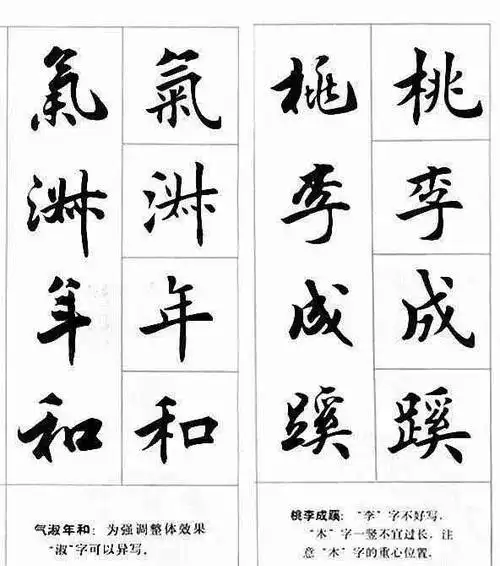 桃李成蹊
桃李成蹊
桃李成蹊:“李”字不好写,
“木”字一竖不宜过长,注
意“木”字的重心位置。
氣淑年和
氣淑年和
气淑年和:为强调整体效果
“淑”字可以异写。